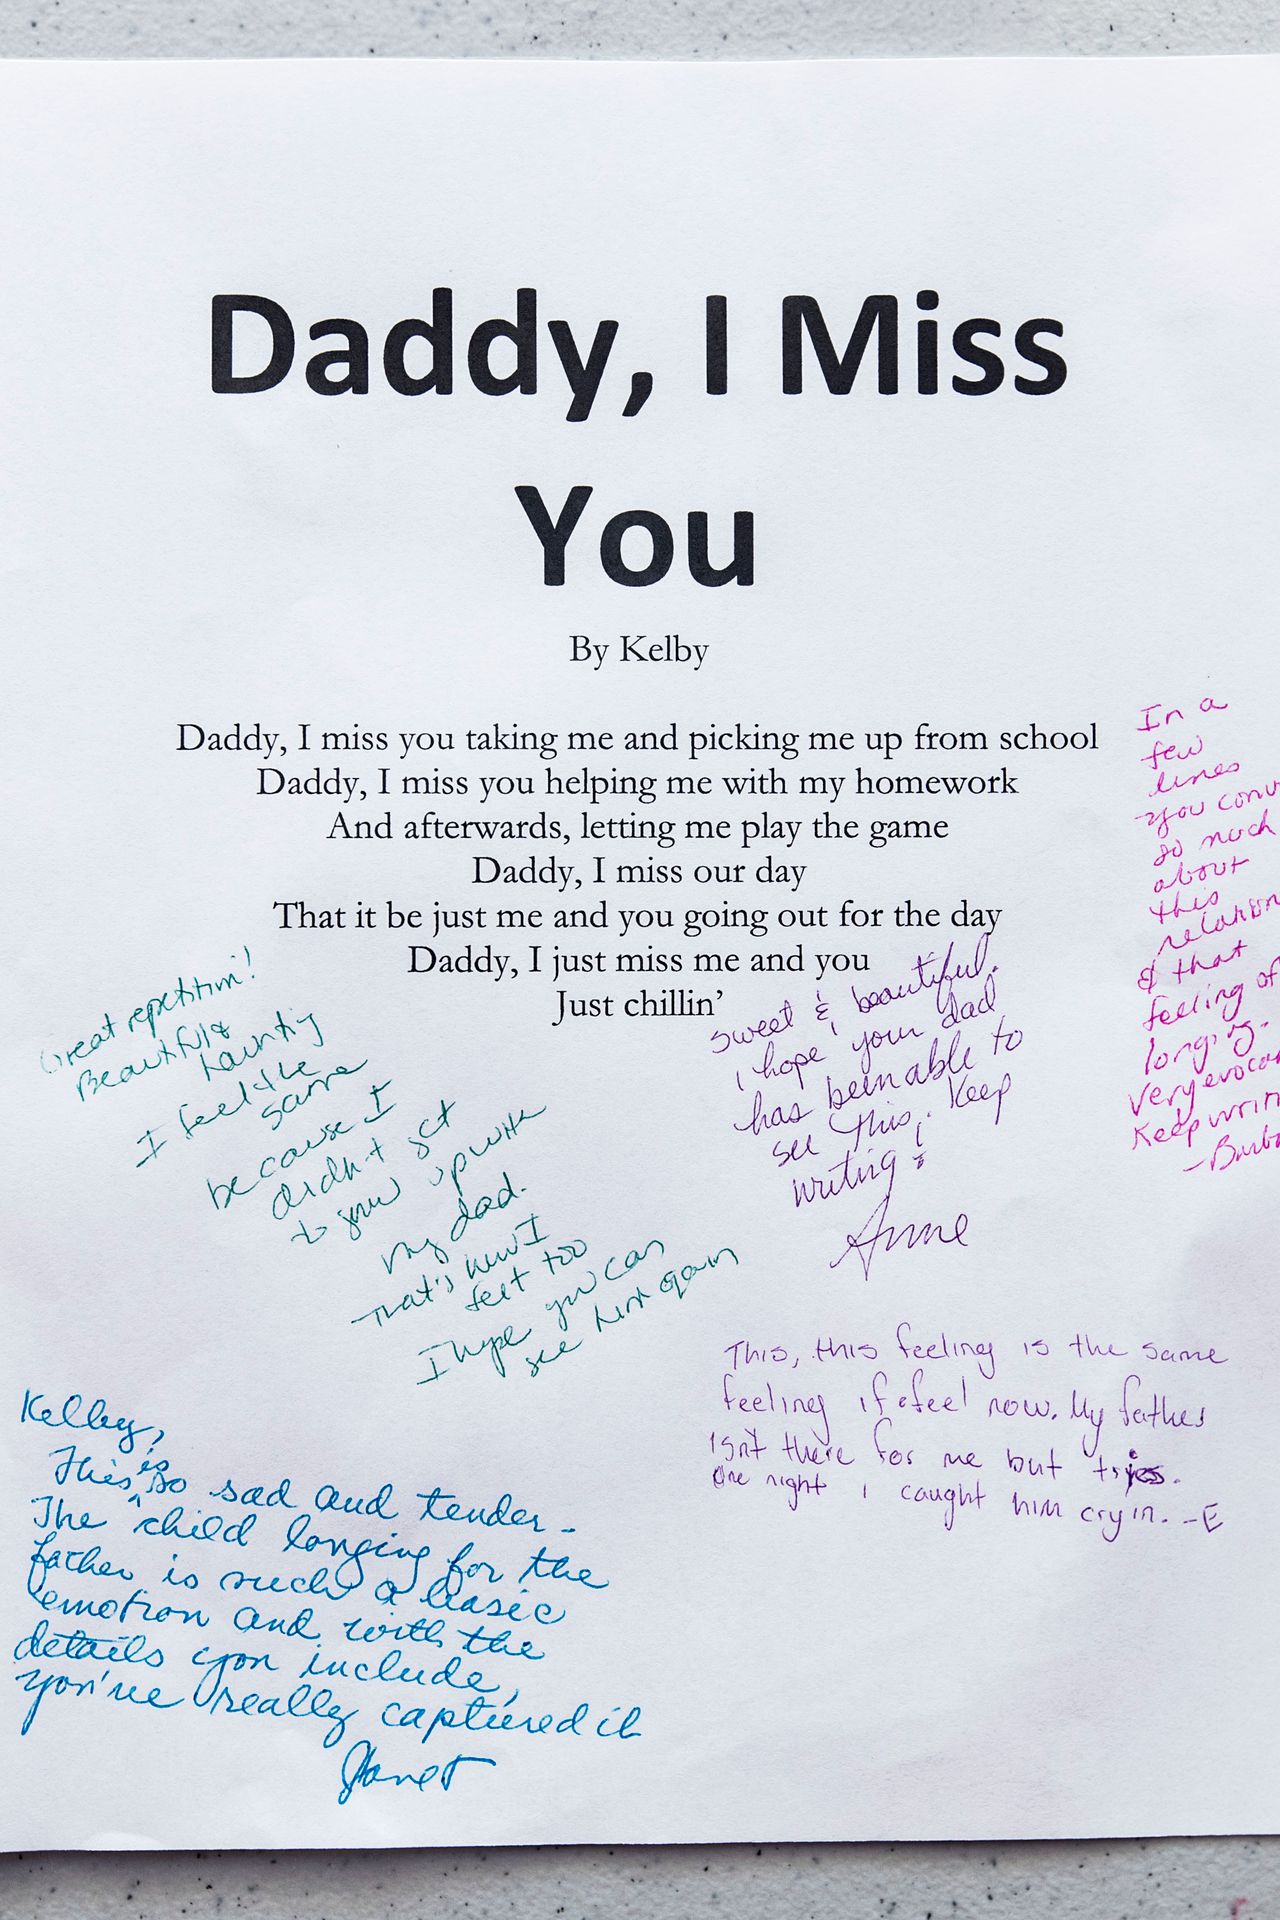 Daddy, I Miss
You
By Kelby
Daddy, I miss you taking me and picking me up from school
Daddy, I miss you helping me with my homework
And afterwards, letting me play the game
Daddy, I miss our day
That it be just me and you going out for the day
Daddy, I just miss me and you
Just chillin’
Great repetition!
Beautiful &
haunting
I feel the
same
because I
didn't get
to grow up with
my dad.
That's how I
feel too
I hope you can
see him again
sweet & beautiful.
I hope your dad
has been able to
see this. Keep
writing!
Anne
In a
few
lines
you
so much
about
this
& that
feeling of
longing.
very
Keep
This, this feeling is the same
feeling I feel now. My father
isn't there for me but tries.
One night I caught him cryin. -E
Kelby,
This is so sad and tender -
The child longing for the
father is such a basic
emotion and with the
details you include,
you've really captured it
Janet